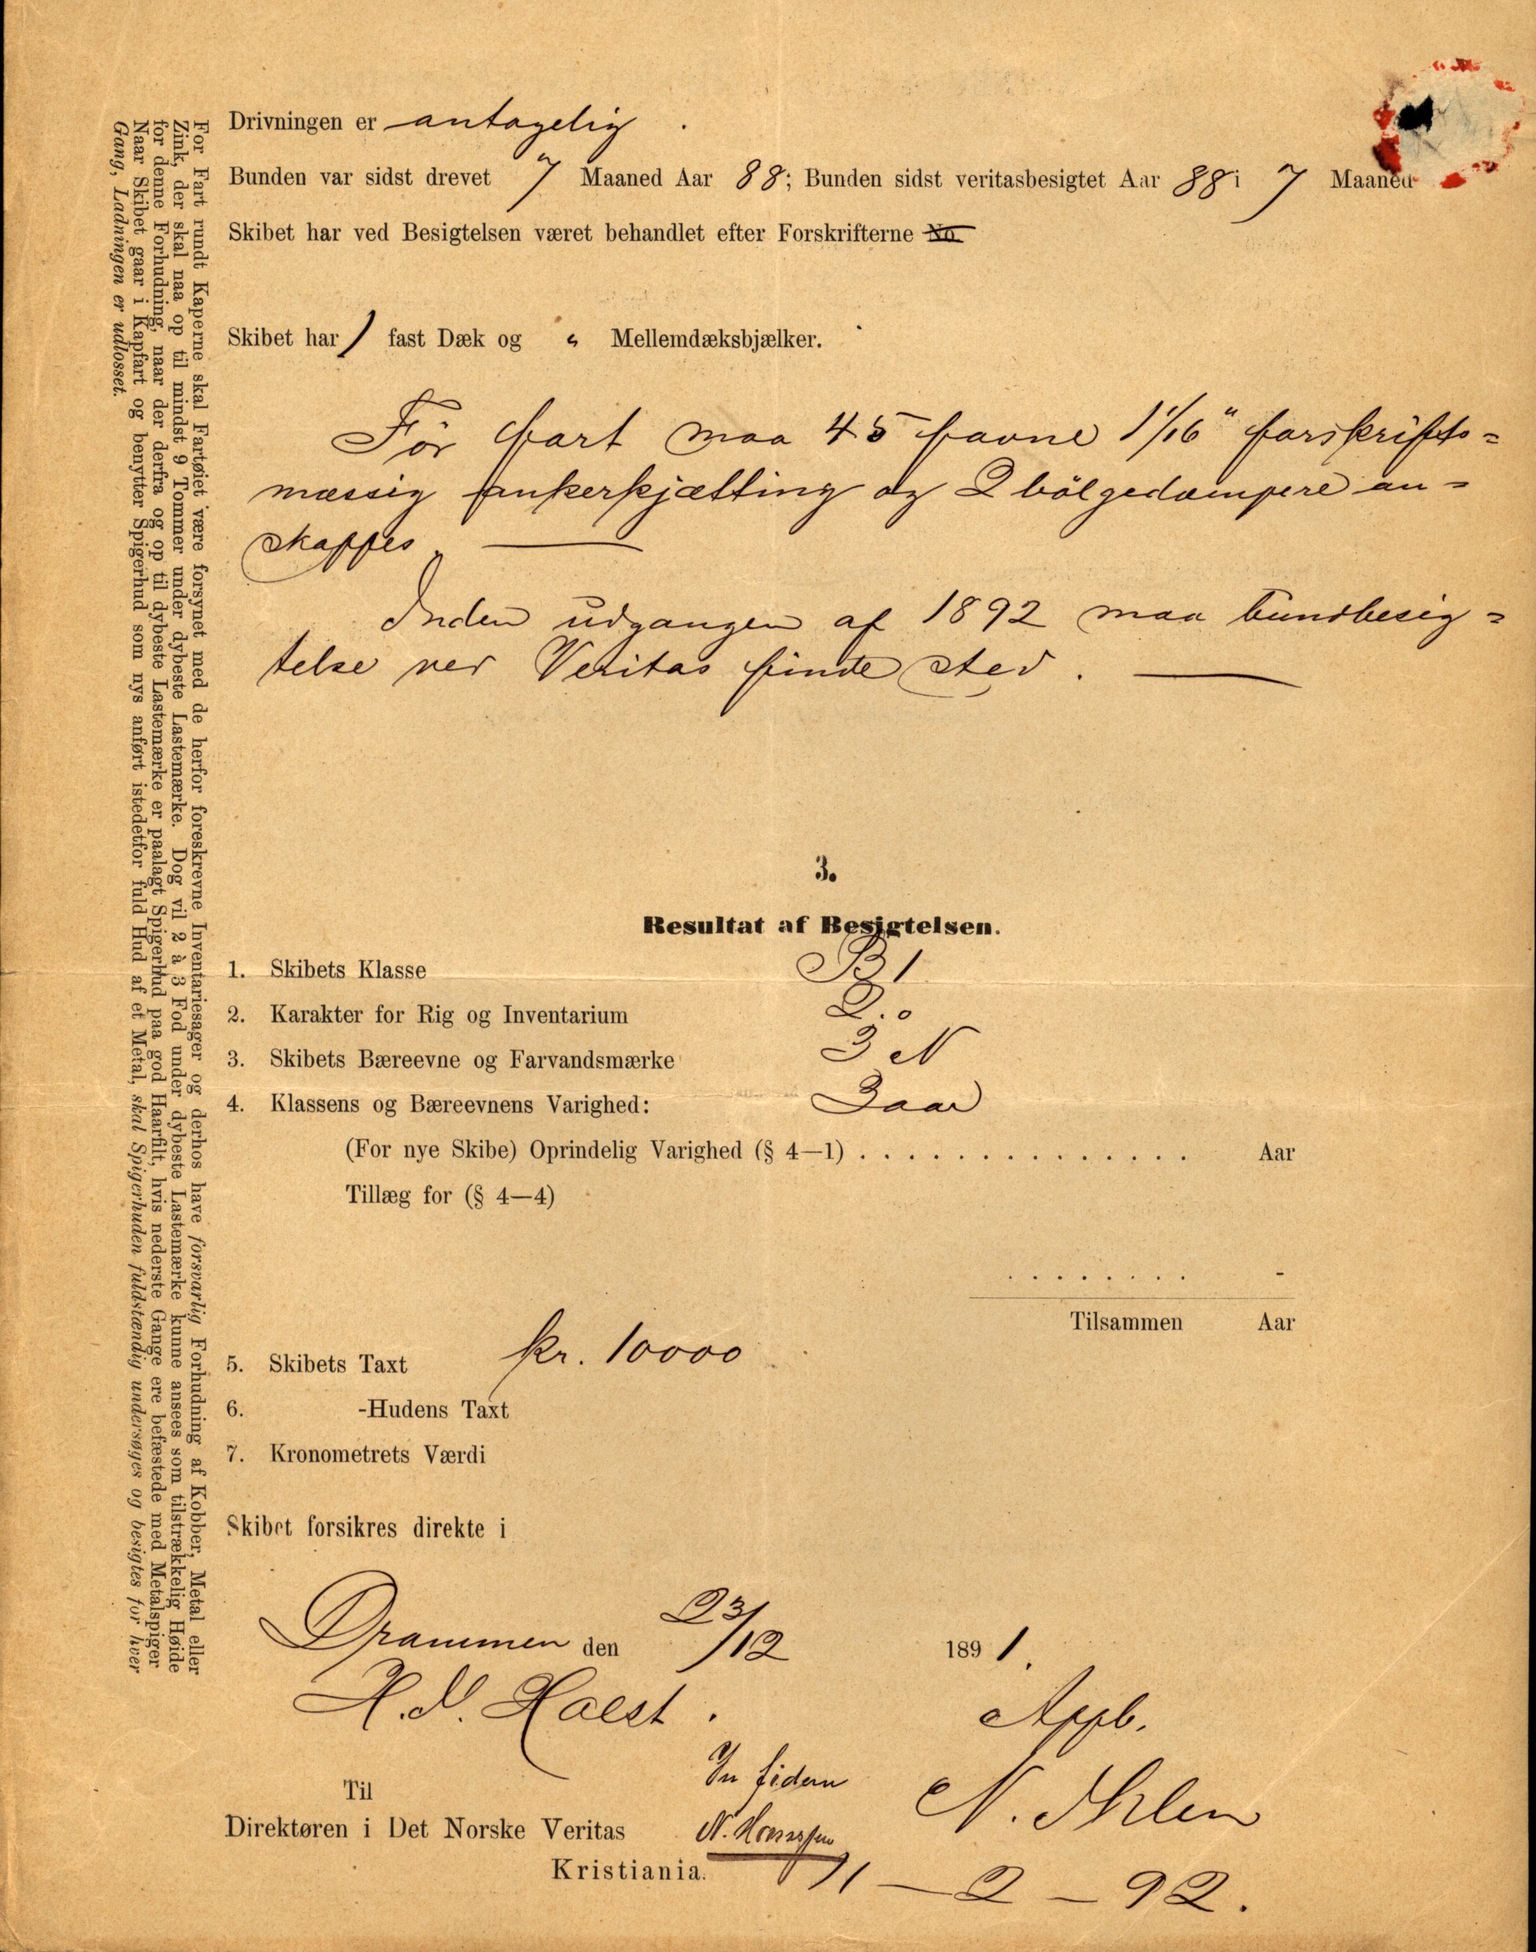 Drivningen er antagelig .
Bunden var sidst drevet 7 Maaned Aar 88; Bunden sidst veritasbesigtet Aar 88 i 7 Maaned
Skibet har ved Besigtelsen været behandlet efter Forskrifterne No.
Skibet har 1 fast Dæk og " Mellemdæksbjælker.
Før fart maa 45 favne 1 1/16" forskrifts=
mæssig ankerkjætting og 2 bölgedæmpere an=
skaffes.
Inden udgangen af 1892 maa bundbesig=
telse ved Veritas finde sted.
3.
Resultat af Besigtelsen.
1. Skibets Klasse B 1
2. Karakter for Rig og Inventarium 2.
3. Skibets Bæreevne og Farvandsmærke 3 N
4. Klassens og Bæreevnens Varighed: 3 aar
(For nye Skibe) Oprindelig Varighed (§ 4—1) . . . . . . . . . . . . . . . Aar
Tillæg for (§ 4—4)
. . . . . . . . -
Tilsammen Aar
5. Skibets Taxt kr. 10000
6. -Hudens Taxt
7. Kronometrets Værdi
Skibet forsikres direkte i
Drammen den 23/12 1891.
H. N. Holst . Appb.
In fidem
Til N. Ihlen
Direktøren i Det Norske Veritas
Kristiania. 11 — 2 — 92.
For Fart rundt Kaperne skal Fartøiet være forsynet med de herfor foreskrevne Inventariesager og derhos have forsvarlig Forhudning af Kobber, Metal eller
Zink, der skal naa op til mindst 9 Tommer under dybeste Lastemærke. Dog vil 2 à 3 Fod under dybeste Lastemærke kunne ansees som tilstrækkelig Høide
for denne Forhudning, naar der derfra og op til dybeste Lastemærke er paalagt Spigerhud paa god Haarfilt, hvis nederste Gange ere befæstede med Metalspiger
Naar Skibet gaar i Kapfart og benytter Spigerhud som nys anført istedetfor fuld Hud af et Metal, skal Spigerhuden fuldstændig undersøges og besigtes for hver
Gang, Ladningen er udlosset.